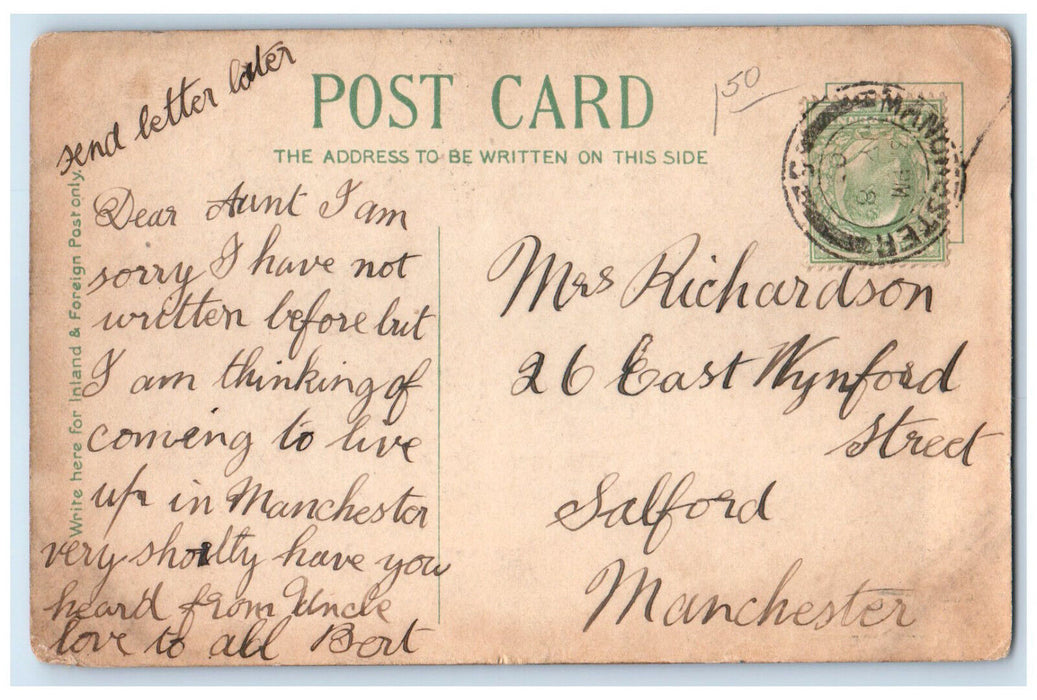 send letter later
POST CARD
THE ADDRESS TO BE WRITTEN ON THIS SIDE
Write here for Inland & Foreign Post only.
Dear Aunt I am
sorry I have not
written before but
I am thinking of
coming to live
up in Manchester
very shortly have you
heard from Uncle
love to all Bert
150
MANCHESTER
PM
Mrs Richardson
26 East Wynford
Street
Salford
Manchester